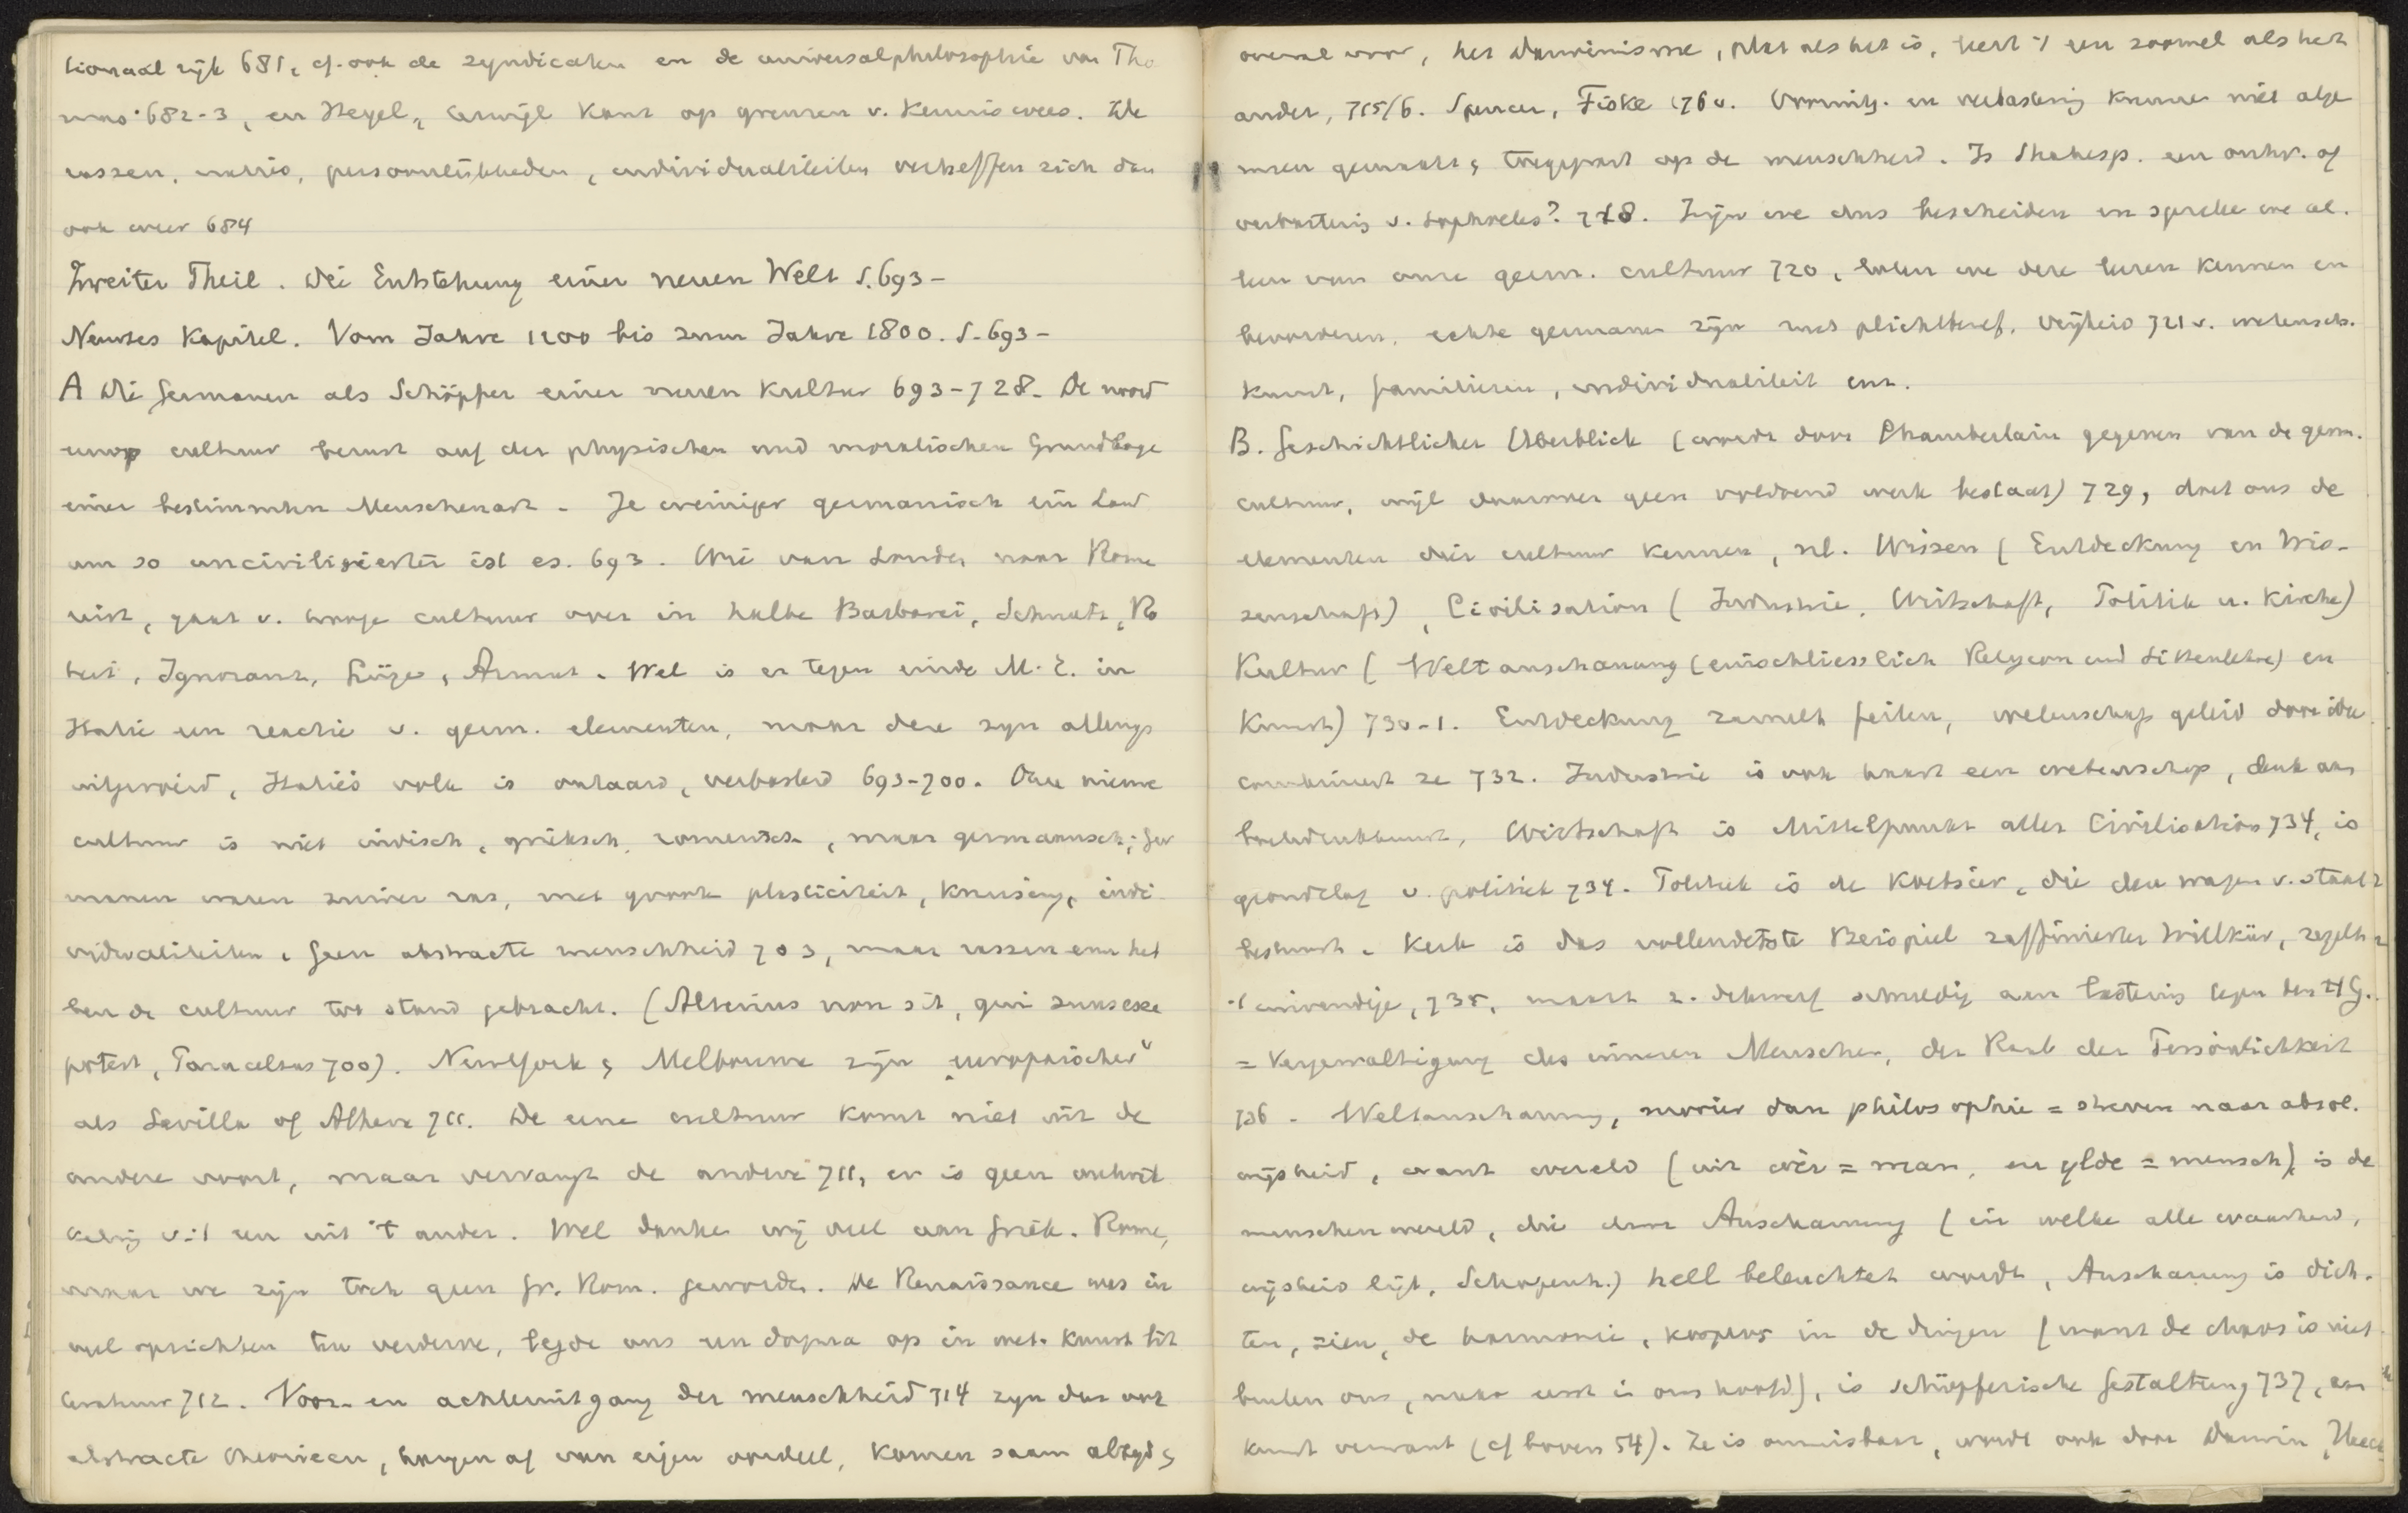 tionaal rijk 681, cf. ook de syndicaten en de universalphilosophie van Tho
mas 682-3, en Hegel, terwijl Kant op grenzen v. kennis wees. De
rassen, natiën, persoonlijkheden, individualiteiten verheffen zich dan
ook weer 684
Zweiter Theil. Die Entstehung einer neuen Welt S. 693-
Neuntes Kapitel. Vom Jahre 1200 bis zum Jahre 1800. S. 693-
A Die Germanen als Schöpfer einer neuen Kultur 693-728. De noord
europ cultuur berust auf der physischen und moralischen Grundlage
einer bestimmten Menschenart. Je weniger germanisch ein Land
um so uncivilisierter ist es. 693. Wie van Londen naar Rome
reist, gaat v. hooge cultuur over in halbe Barbarei, Schmutz, Ro
heit, Ignoranz, Lüge, Armut. Wel is er tegen einde M.E. in
Italië een reactie v. germ. elementen, maar deze zijn allengs
uitgeroeid, Italië's volk is ontaard, verbasterd 693-700. Onze nieuwe
cultuur is niet indisch, grieksch, romeinsch, maar germaansch; Ger
manen waren zuiver ras, met groote plasticiteit, kruising, indi
vidualiteiten. Geen abstracte menschheid 703, maar rassen enz heb
ben de cultuur tot stand gebracht. (Alterius non sit, qui suus esse
potest, Paracelsus 700). New York & Melbourne zijn „europäischer"
als Sevilla of Athene 711. De eene cultuur komt niet uit de
andere voort, maar vervangt de andere 711, er is geen ontwik
keling v. 't een uit 't ander. Wel danken wij veel aan Griek. Rome,
maar we zijn toch geen Gr. Rom. geworden. De Renaissance was in
veel opzichten ten verderve, legde ons een dogma op in wet. kunst lit
teratuur 712. Voor- en achteruitgang der menschheid 714 zijn dan ook
abstracte theorieën, hangen af van eigen oordeel, komen saam altijd &
overal voor, het Darwinisme, plat als het is, leert 't een zoowel als het
ander, 715/6. Spencer, Fiske 176 v. Vooruitg. en verbastering kunnen niet alge
meen gemaakt, & toegepast op de menschheid. Is Shakesp. een ontw. of
verbastering v. Sophocles? 718. Zijn we dus bescheiden en spreken we al.
leen van onze germ. cultuur 720, laten we deze leeren kennen en
bevorderen, echte germanen zijn met plichtbesef, vrijheid 721 v. wetensch.
kunst, familieleven, individualiteit enz.
B. Geschichtlicher Überblick (wordt door Chamberlain gegeven van de germ.
cultuur, wijl daarover geen voldoend werk bestaat) 729, doet ons de
elementen dier cultuur kennen, nl. Wissen (Entdeckung en Wis-
senschaft), Civilisation (Industrie, Wirtschaft, Politik u. Kirche)
Kultur (Weltanschauung (einschliesslich Religion und Sittenlehre) en
Kunst) 730-1. Entdeckung zamelt feiten, wetenschap geleid door idee
combineert ze 732. Industrie is ook haast een wetenschap, denk aan
boekdrukkunst, Wirtschaft is Mittelpunkt aller Civilisation 734, is
grondslag v. politiek 734. Politiek is de koetsier, die den wagen v. staat
bestuurt. Kerk is das vollendetste Beispiel raffinierter Willkür, regelt
't inwendige, 735, maakt z. dikwerf schuldig aan lastering tegen den H G.
= Vergewaltigung des inneren Menschen, der Raub der Persönlichkeit
736. Weltanschauung, mooier dan philosophie = streven naar absol.
wijsheid, want wereld (uit wër = man, en ylde = mensch) is de
menschenwereld, die door Anschauung (in welke alle waarheid,
wijsheid ligt, Schopenh.) hell beleuchtet wordt, Anschauung is dich.
ten, zien, de harmonie, kosmos in de dingen (want de chaos is niet
buiten ons, maar eerst in ons hoofd), is schöpferische Gestaltung 737, aan
kunst verwant (cf boven 54). Ze is onmisbaar, wordt ook door Darwin, Haeck